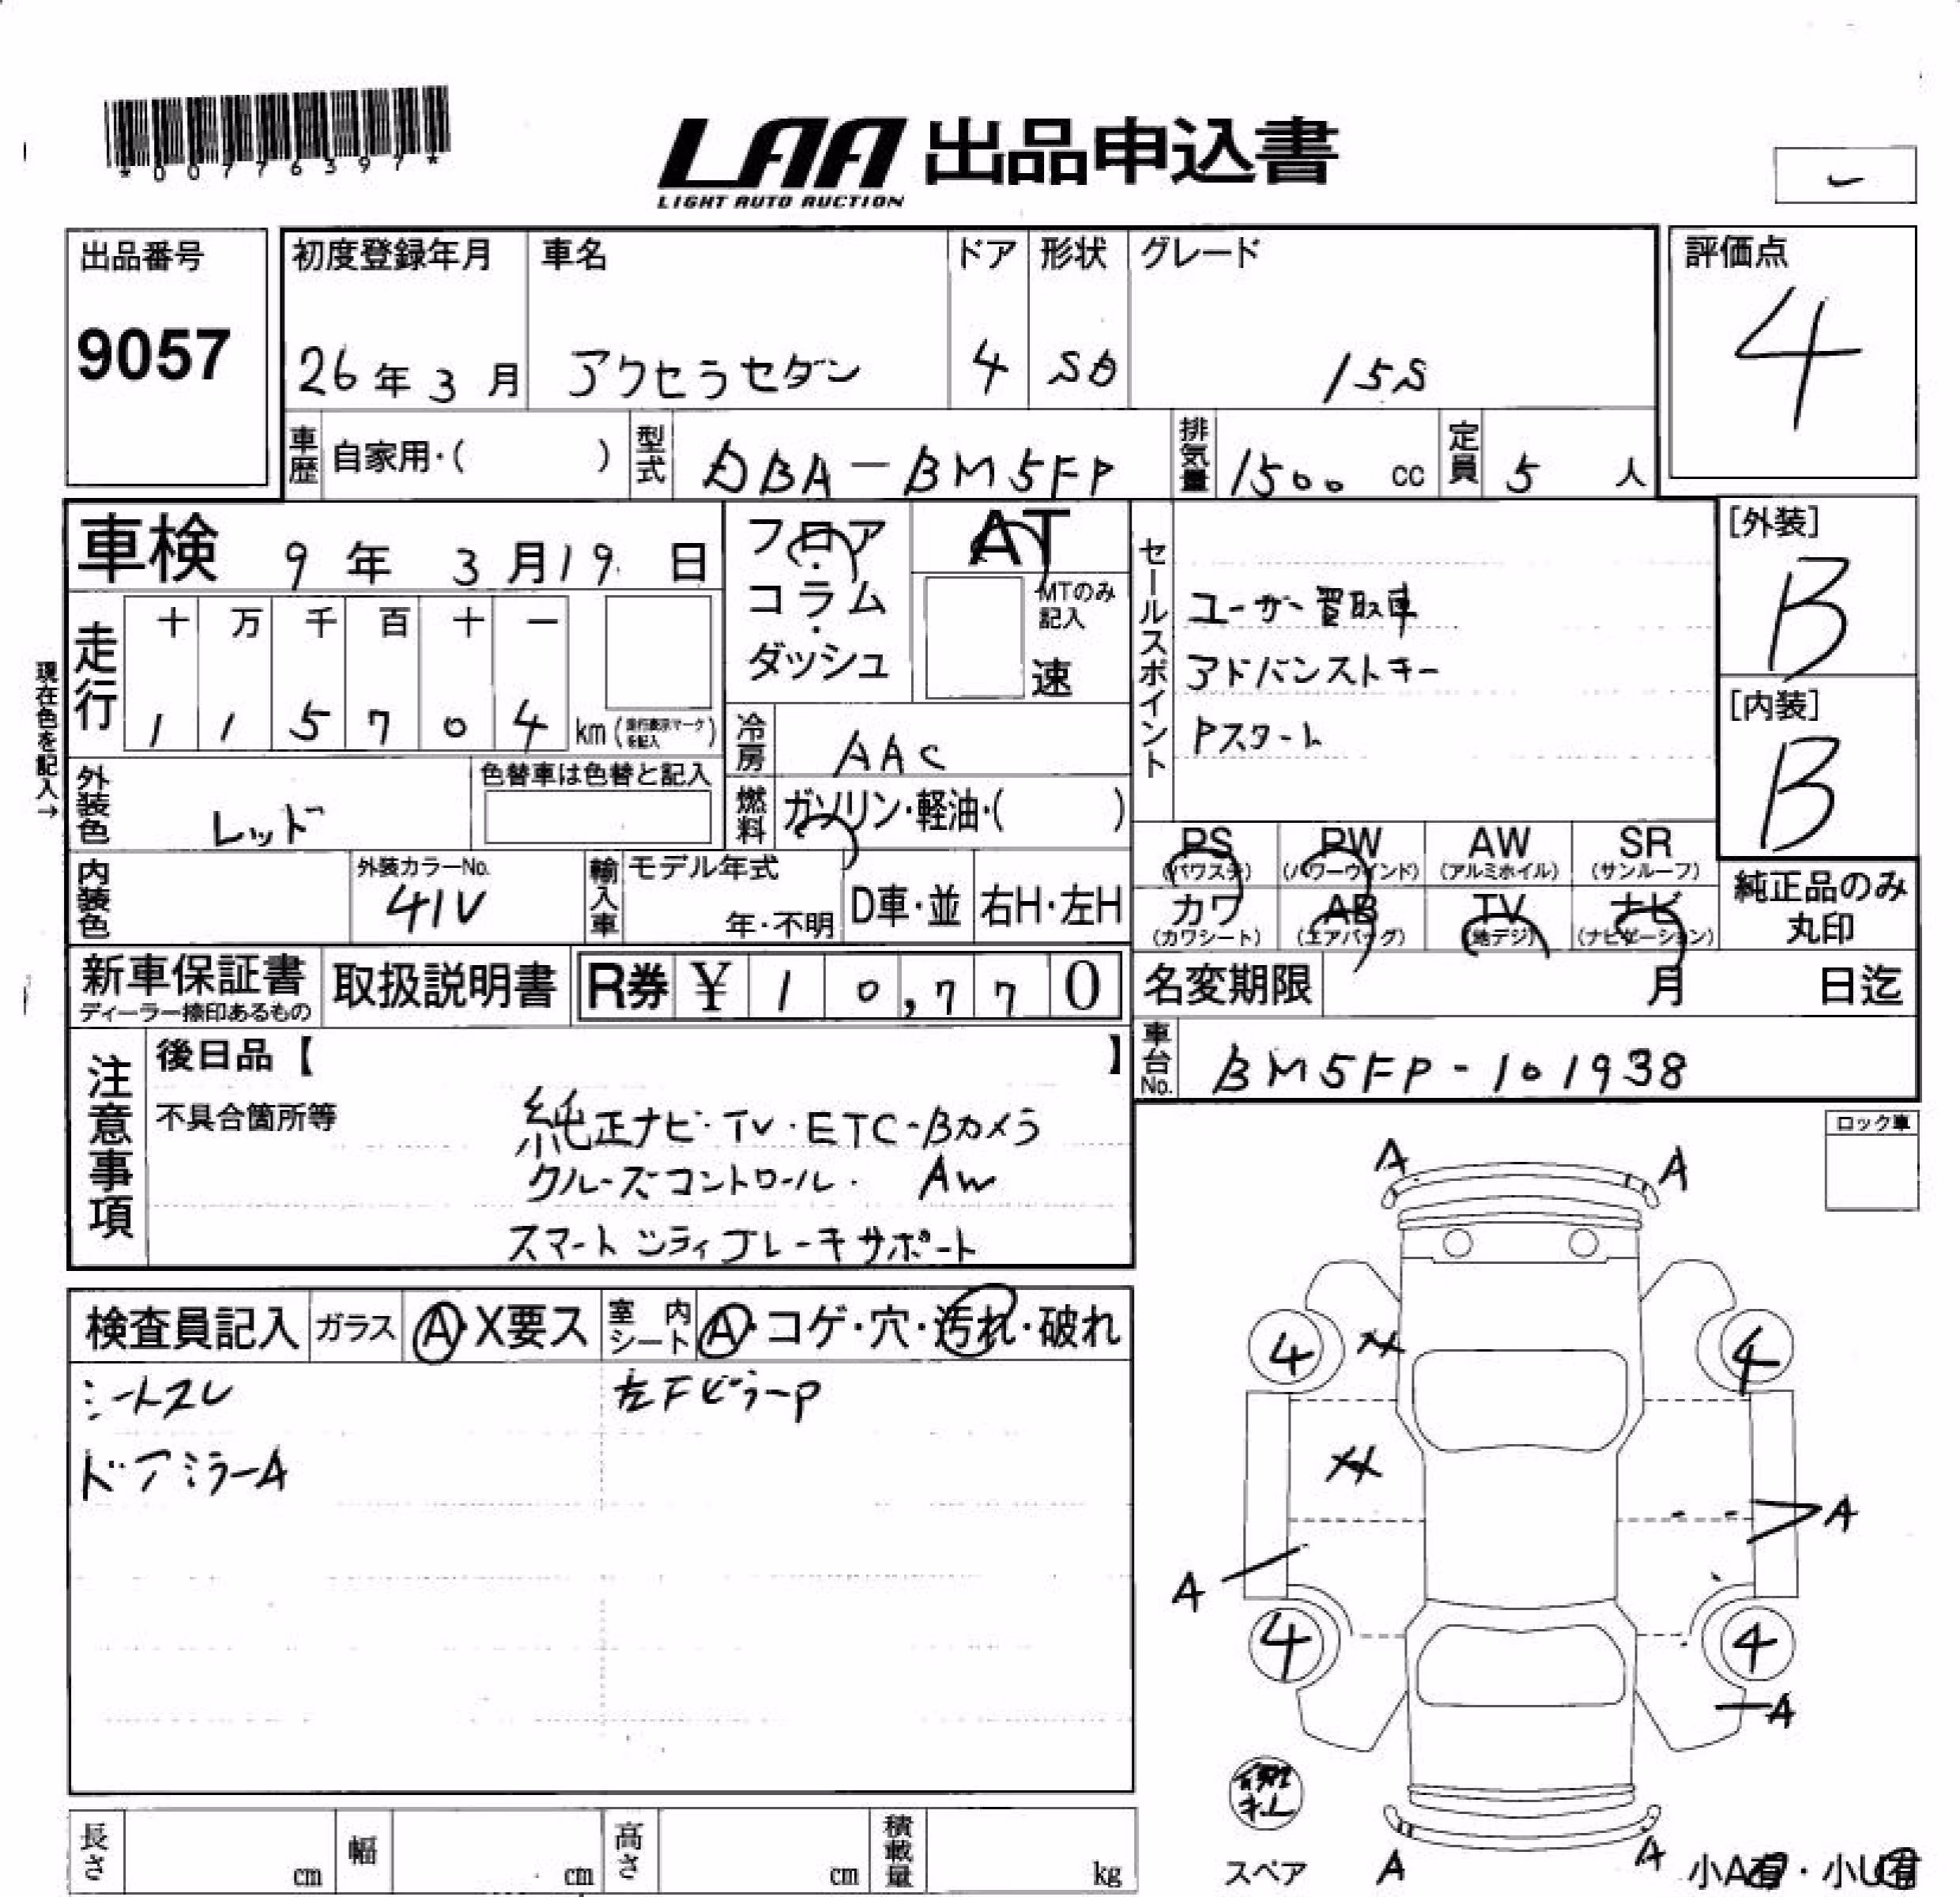 *00776397*
LAA 出品申込書
LIGHT AUTO AUCTION
出品番号
9057
初度登録年月
26年3月
車名
アクセラセダン
ドア
4
形状
SD
グレード
15S
評価点
4
車歴 自家用・( )
型式 DBA-BM5FP
排気量 1500 cc
定員 5 人
車検 9年 3月19日
フロア・コラム・ダッシュ
AT
MTのみ記入
速
セールスポイント
ユーザー買取車
アドバンストキー
Pスタート
[外装]
B
[内装]
B
現在色を記入→
走行
十 万 千 百 十 一
1 1 5 7 0 4 km (走行表示マークを記入)
冷房 AAC
外装色 レッド
色替車は色替と記入
燃料 ガソリン・軽油・( )
PS (パワステ)
PW (パワーウインド)
AW (アルミホイル)
SR (サンルーフ)
カワ (カワシート)
AB (エアバッグ)
TV (地デジ)
ナビ (ナビゲーション)
純正品のみ
丸印
内装色
外装カラーNo.
41V
輸入車
モデル年式
年・不明
D車・並
右H・左H
新車保証書
ディーラー捺印あるもの
取扱説明書
R券 ¥ 10,770
名変期限 月 日迄
車台No. BM5FP-101938
注意事項
後日品【 】
不具合箇所等
純正ナビ・TV・ETC・Bカメラ
クルーズコントロール・ AW
スマートシティブレーキサポート
ロック車
検査員記入
ガラス A・X要ス
室内シート A・コゲ・穴・汚れ・破れ
シートスレ
左FピラーP
ドアミラーA
A
A
4
4
A
A
4
4
A
スペア
A
A
小A有・小U有
長さ cm
幅 cm
高さ cm
積載量 kg